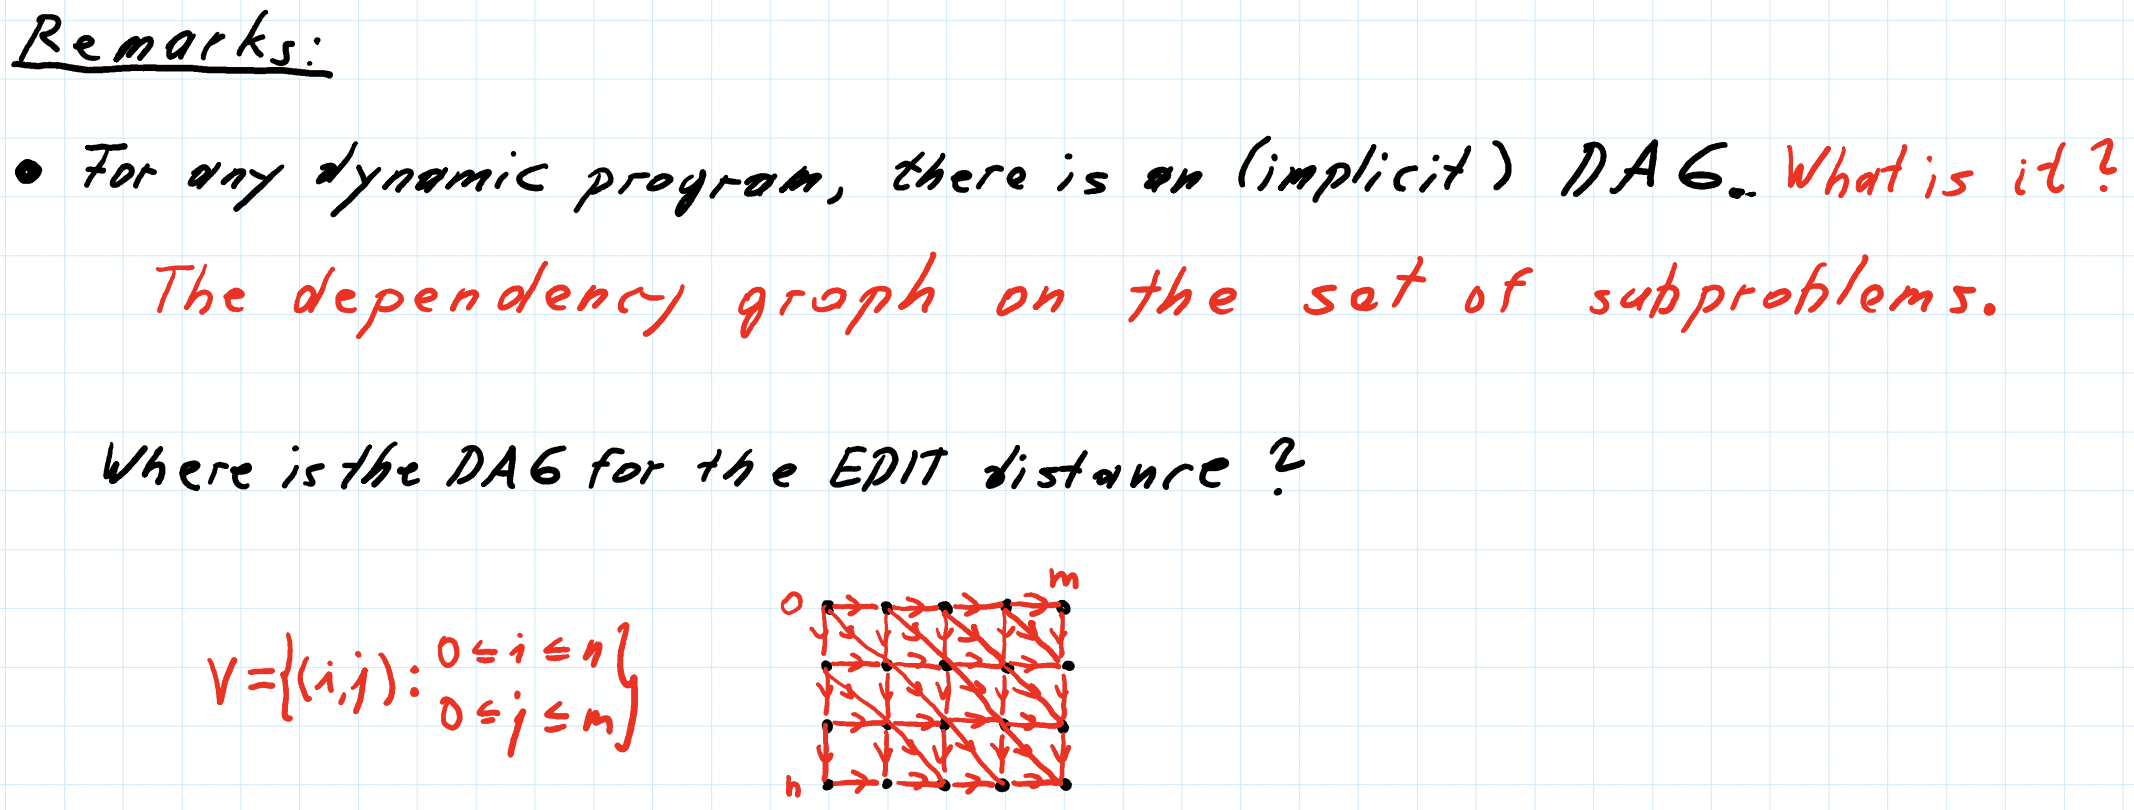 Remarks:
• For any dynamic program, there is an (implicit) DAG. What is it?
The dependency graph on the set of subproblems.
Where is the DAG for the EDIT distance?
V={(i,j): 0≤i≤n
0≤j≤m}
m
0
n